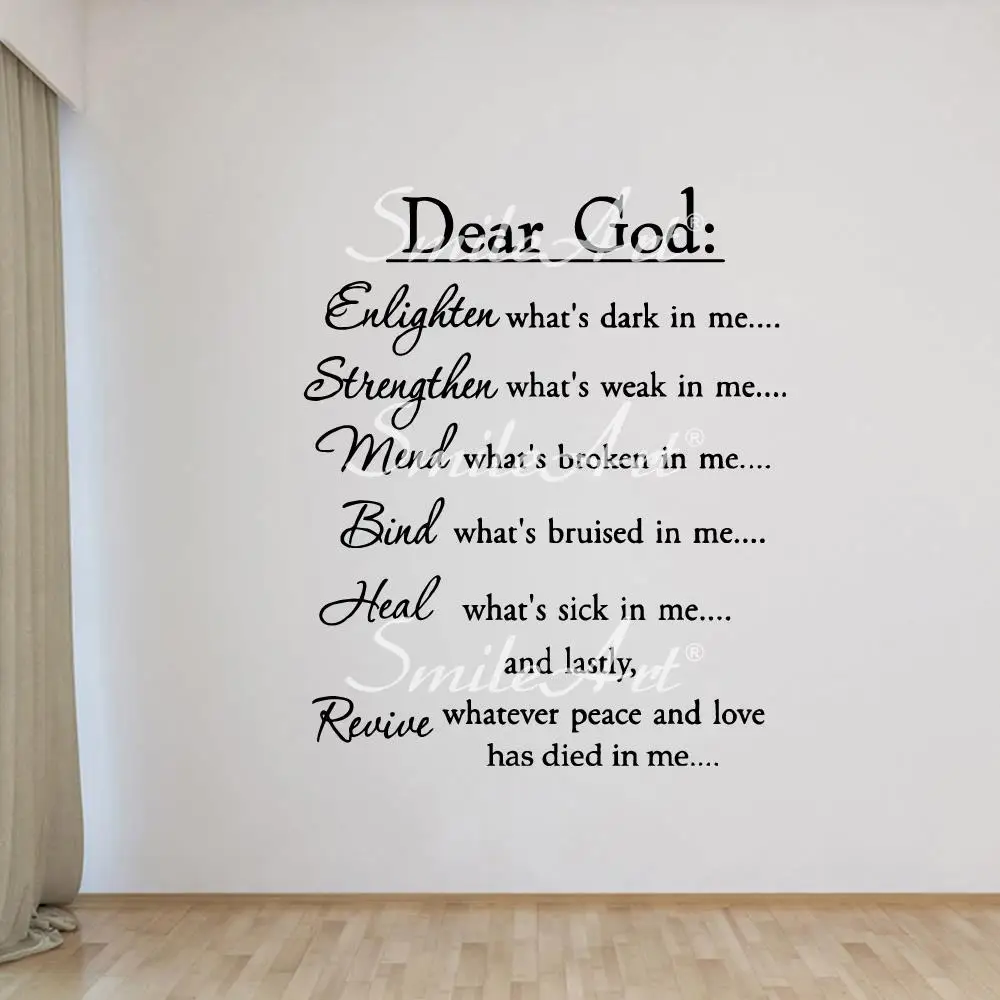 Dear God:
Enlighten what's dark in me....
Strengthen what's weak in me....
Mend what's broken in me....
Bind what's bruised in me....
Heal what's sick in me....
and lastly,
Revive whatever peace and love
has died in me....
SmileArt®
SmileArt®
SmileArt®